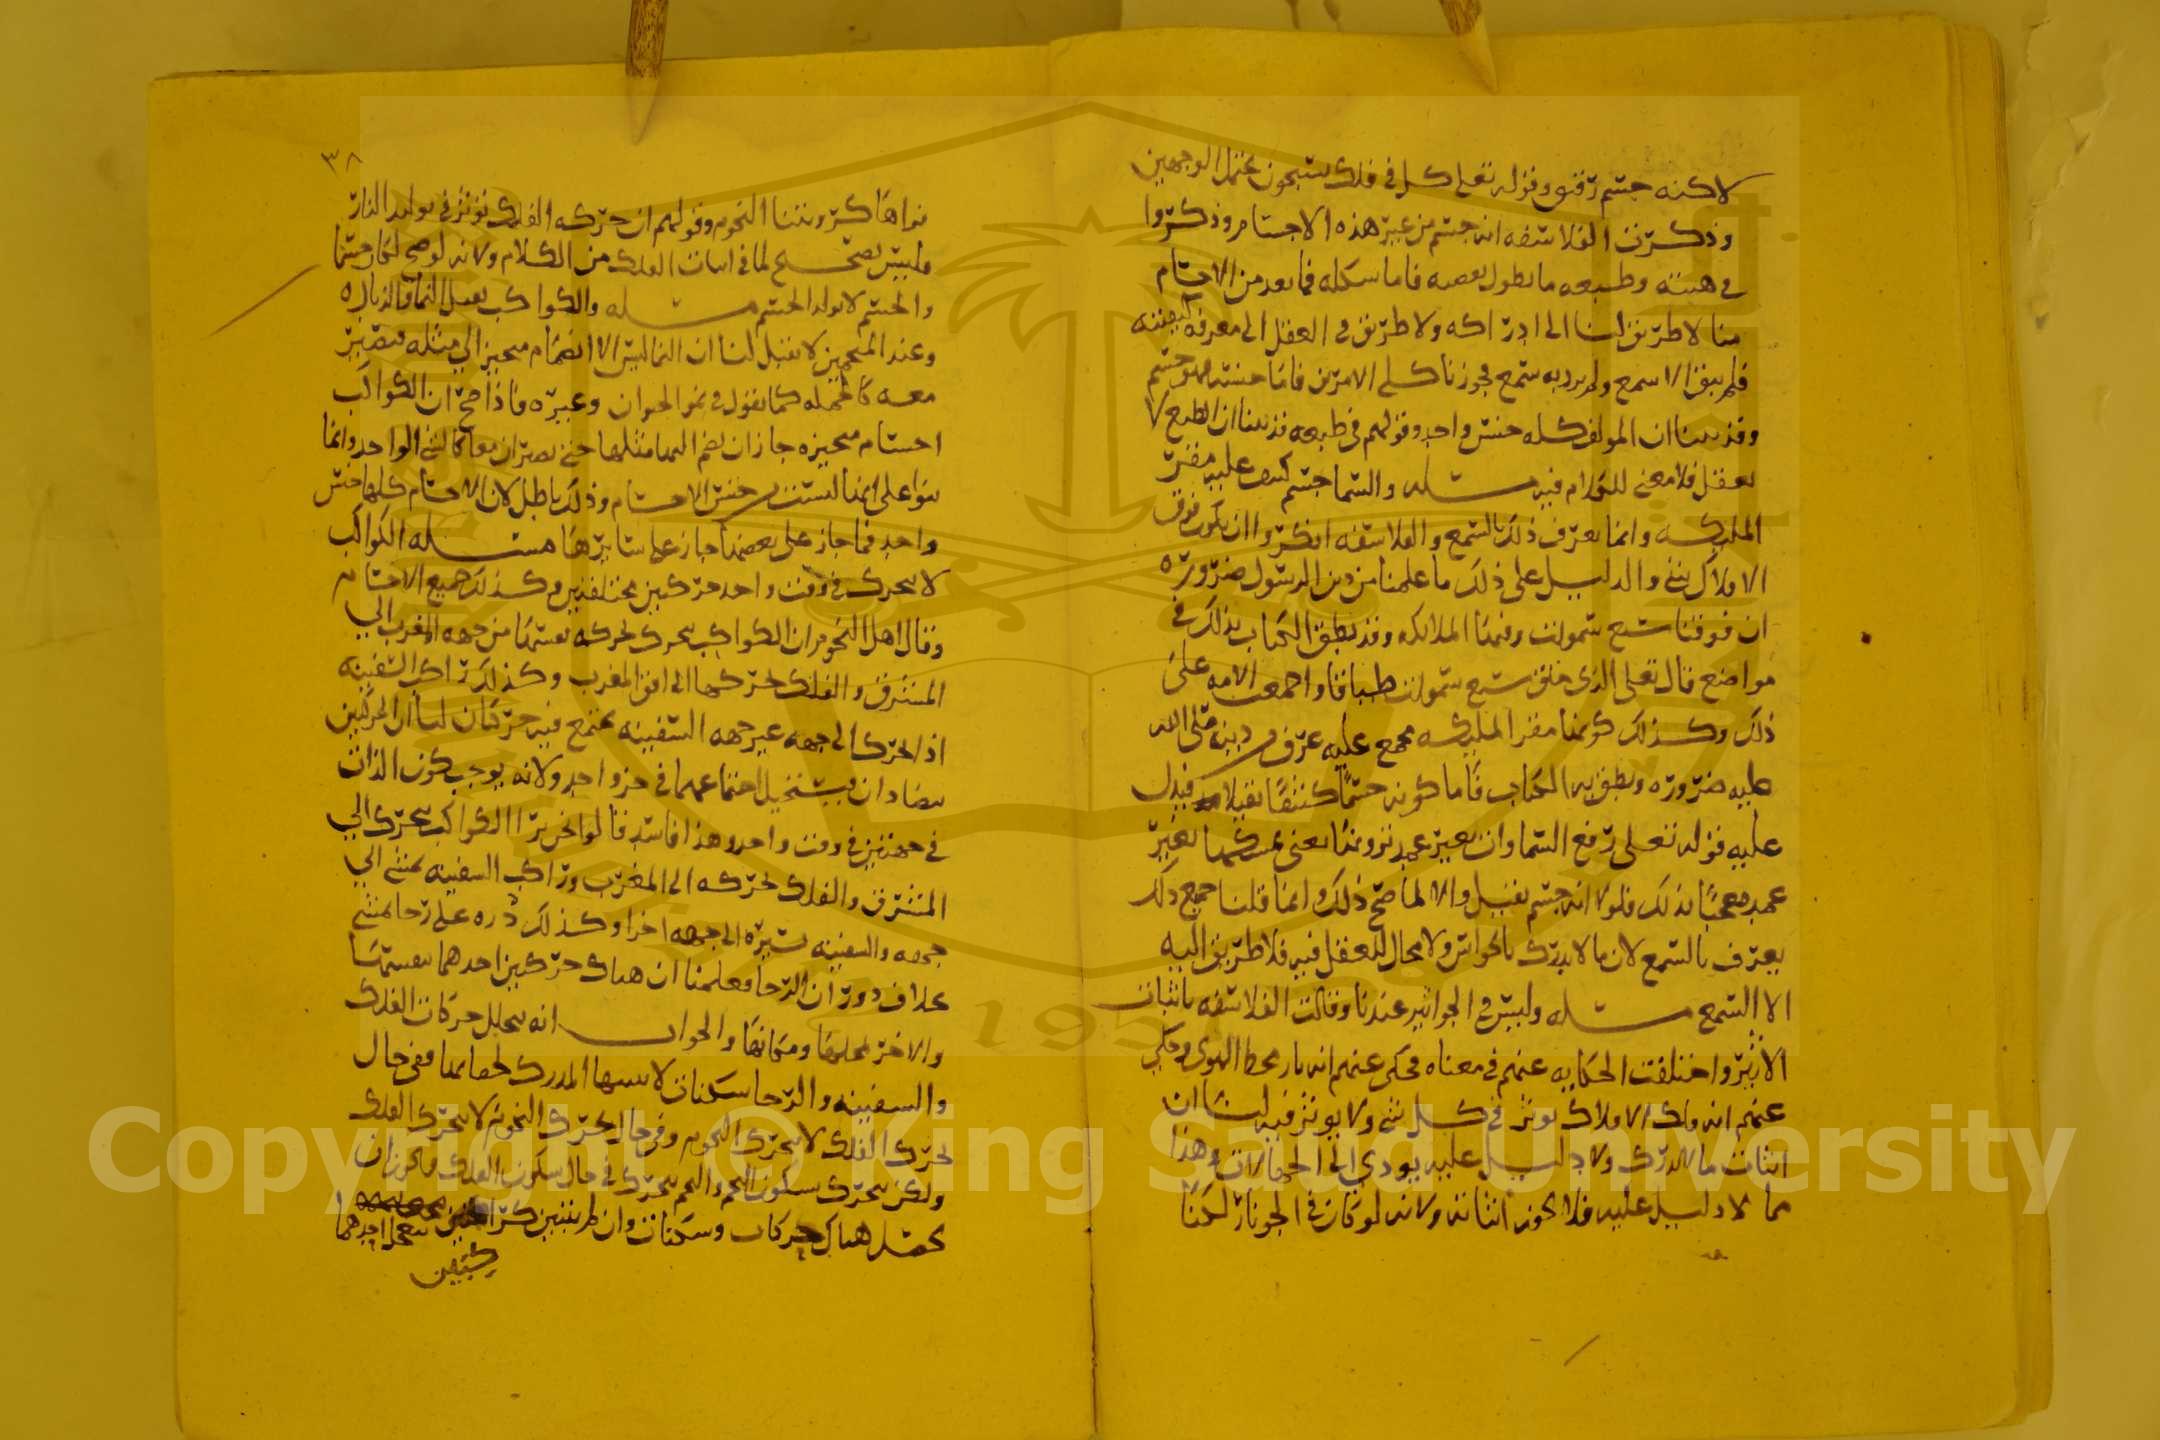 لاكنه جسم رقيق وقوله تعلى كل في فلك يسبحون يحتمل الوجهين
وذكرت الفلاسفه انه جسم من غير هذه الاجسام وذكروا
في هيئته وطبعه ما يطول بعضه فاما شكله فما بعد من الاجسام
منا لا طريق لنا الى ادراكه ولا طريق في العقل الى معرفه كيفيته
فلم يبق الا سمع ولم يرد به سمع فجوزنا كلى الامرين فاما جنسه فهو جسم
وقد بينا ان المولف كله جنس واحد وقولهم في طبعه قد بينا ان الطبع لا
يعقل فلا معنى للكلام فيه مسله والسما جسم كثيف عليه مقر
المليكه وانما يعرف ذلك بالسمع والفلاسفه انكروا ان يكون فوق
الافلاك شي والدليل على ذلك ما علمنا من دين الرسول ضروره
ان فوقنا سبع سموات وفيها الملائكه وقد نطق الكتاب بذلك في
مواضع قال تعلى الذي خلق سبع سموات طباقا واجمعت الامه على
ذلك وكذلك كونها مقر المليكه مجمع عليه عرف من دينه صلى الله
عليه ضروره ونطق به الكتاب فاما كونه جسما كثيفا ثقيلا فيدل
عليه قوله تعلى رفع السماوات بغير عمد ترونها يعني يمسكها بغير
عمد معجبا بذلك فلولا انه جسم ثقيل والا لما صح ذلك وانما قلنا جميع ذلك
يعرف بالسمع لان ما لا يدرك بالحواس ولا مجال للعقل فيه فلا طريق اليه
الا السمع مسله وليس في الجو اثير عندنا وقالت الفلاسفه باثبات
الاثير واختلفت الحكايه عنهم في معناه فحكي عنهم انه نار محيط الهوى وحكي
عنهم انه فلك الافلاك يوثر في كل شي ولا يوثر فيه لنا ان
اثبات ما لا يدرك ولا دليل عليه يودي الى الجهالات وهذا
مما لا دليل عليه فلا يجوز اثباته ولانه لو كان في الجو نار لكنا
٣٨
نراها كرويتنا النجوم وقولهم ان حركه الفلك توثر في توليد النار
وليس بصحيح لما في اثبات الفلك من الكلام ولانه لو صح لكان جسما
والجسم لا يولد الجسم مسله والكواكب تقبل النما والزياده
وعند المنجمين لا تقبل لنا ان النما ليس الا انضمام متحيز الي مثله فتصير
معه كالجمله كما نقول في نمو الحيوان وغيره فاذا صح ان الكواكب
اجسام متحيزه جاز ان يضم اليها مثلها حتى يصيران معا كالشي الواحد وانما
بنوا على انها ليست من جنس الاجسام وذلك باطل لان الاجسام كلها جنس
واحد فما جاز على بعضها جاز على سايرها مسله الكواكب
لا تتحرك في وقت واحد حركتين مختلفتين وكذلك جميع الاجسام
وقال اهل النجوم ان الكواكب تتحرك بحركه نفسها من جهه المغرب الي
المشرق والفلك يحركها الى افق المغرب وكذلك راكب السفينه
اذا تحرك الى جهه غير جهه السفينه يجتمع فيه حركتان لنا ان الحركتين
يتضادان ويستحيل اجتماعهما في جزو واحد ولانه يوجب كون الذات
في جهتين في وقت واحد وهذا فاسد قالوا نحن نرا الكواكب تتحرك الي
المشرق والفلك يحركه الى المغرب وراكب السفينه يمشي الي
جهه والسفينه تسيره الى جهه اخرا وكذلك ذره على رحا تمشي
بخلاف دوران الرحا فعلمنا ان هناك حركتين احدهما بنفسها
والاخر لمحلها ومكانها والجواب انه يتخلل حركات الفلك
والسفينه والرحا سكنات لا يتبينها المدرك لخفائها ففي حال
تحرك الفلك لا تتحرك النجوم وفي حال تحرك النجوم لا يتحرك الفلك
ولكن يتحرك بسكون النجم والنجم يتحرك في حال سكون الفلك
يحصل هناك حركات وسكنات وان